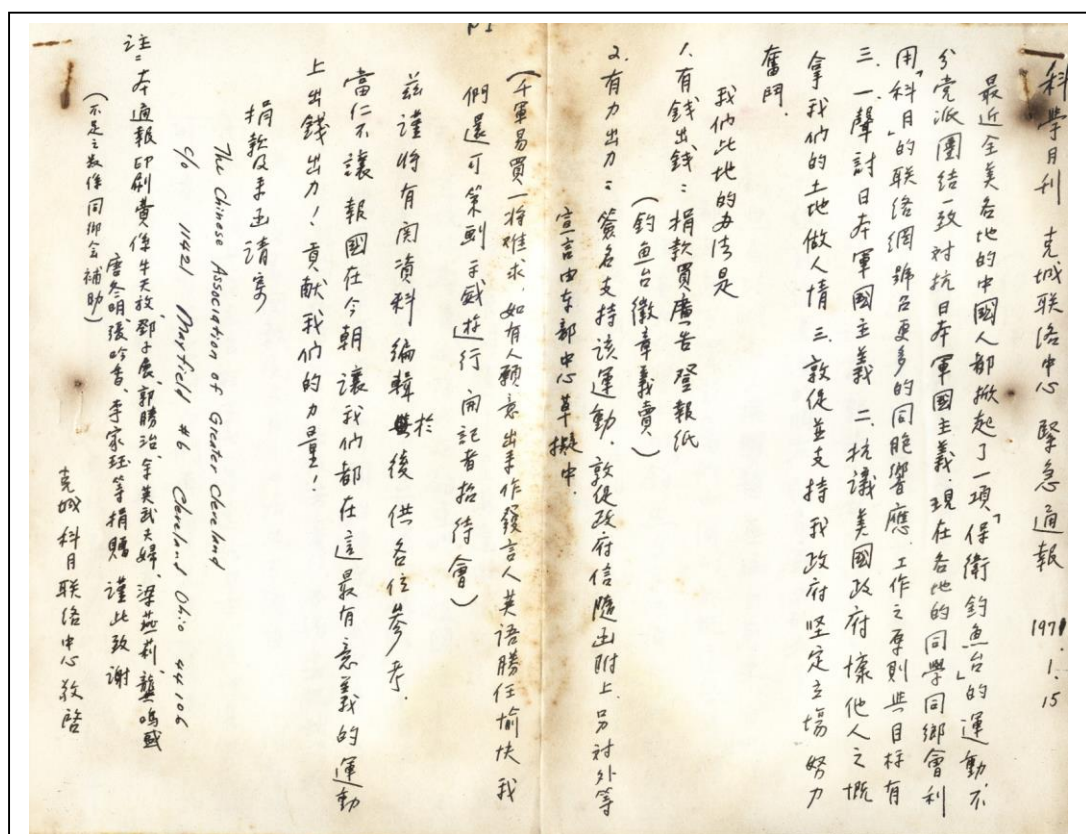 科學月刊 克城联络中心 緊急通報 1971.1.15
最近全美各地的中國人都掀起了一項「保衛釣魚台」的運動.不
分党派團結一致对抗日本軍國主義.現在各地的同學同鄉會利
用「科月」的联络網號召更多的同胞響應.工作之原則與目标有
三.一聲討日本軍國主義 二.抗議美國政府慷他人之慨
拿我們的土地做人情 三.敦促並支持我政府坚定立場努力
奮鬥.
我們此地的办法是
1.有錢出錢:捐款買廣告登報紙
(釣魚台徽章義賣)
2.有力出力:簽名支持該運動.敦促政府信隨函附上.另对外等
宣言由东部中心草擬中.
(千軍易買一将难求.如有人願意出来作發言人英语勝任愉快我
們還可策劃示威遊行 開記者招待會)
茲謹将有関資料編輯於後 供各位参考.
當仁不讓 報國在今朝 讓我們都在這最有意義的運動
上出錢出力!貢献我們的力量!
捐款及来函請寄
The Chinese Association of Greater Cleveland
c/o 11421 Mayfield #6 Cleveland Ohio 44106
註:本通報印刷費係牛天放,鄧子展,郭勝治,余英武夫婦,梁燕莉,龔鳴盛
唐冬明,張吟香,李家珏等捐贈 謹此致謝
(不足之数係同鄉会補助)
克城科月联络中心敬啓